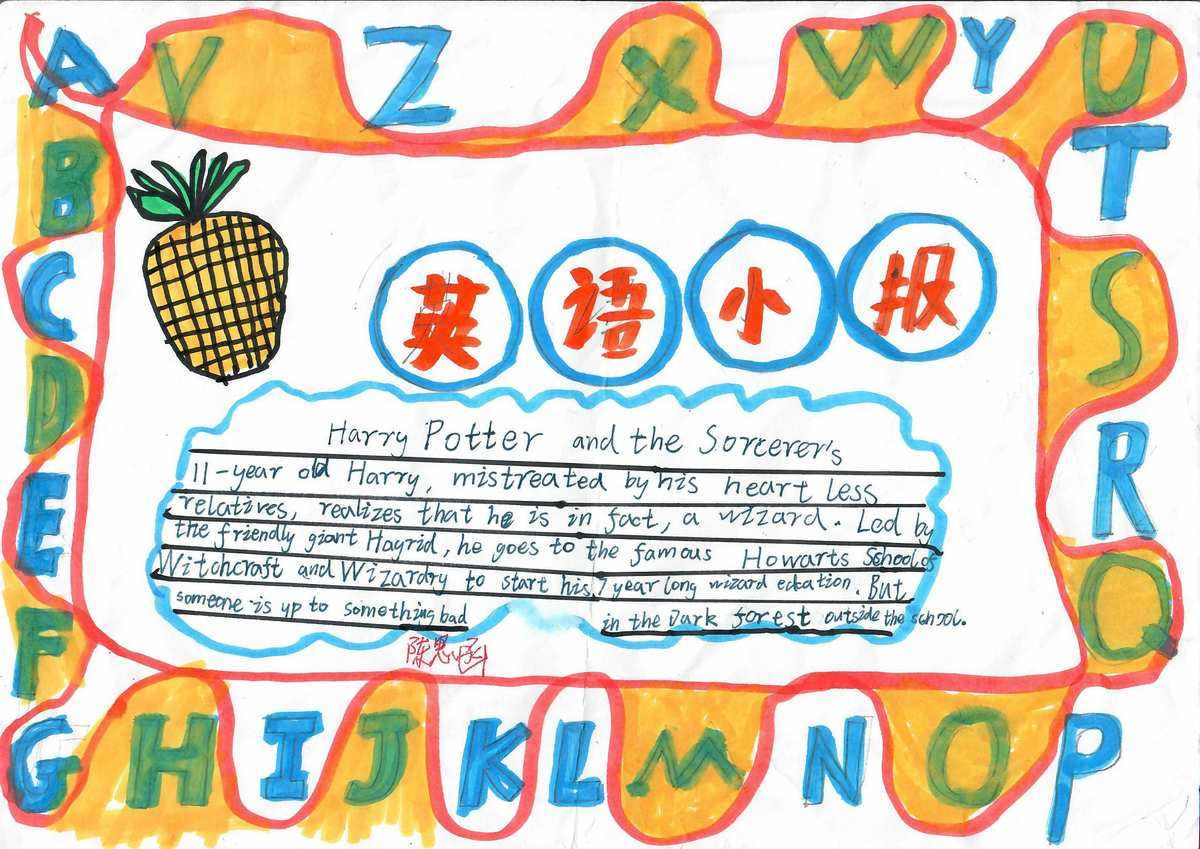 A V Z X W Y U
B T
C S
D R
E Q
F P
G H I J K L M N O
英语小报
Harry Potter and the Sorcerer's
11-year old Harry, mistreated by his heart less
relatives, realizes that he is in fact, a wizard. Led by
the friendly giant Hagrid, he goes to the famous Howarts School of
Witchcraft and Wizardry to start his 7 year long wizard edcation. But
someone is up to something bad in the Dark forest outside the school.